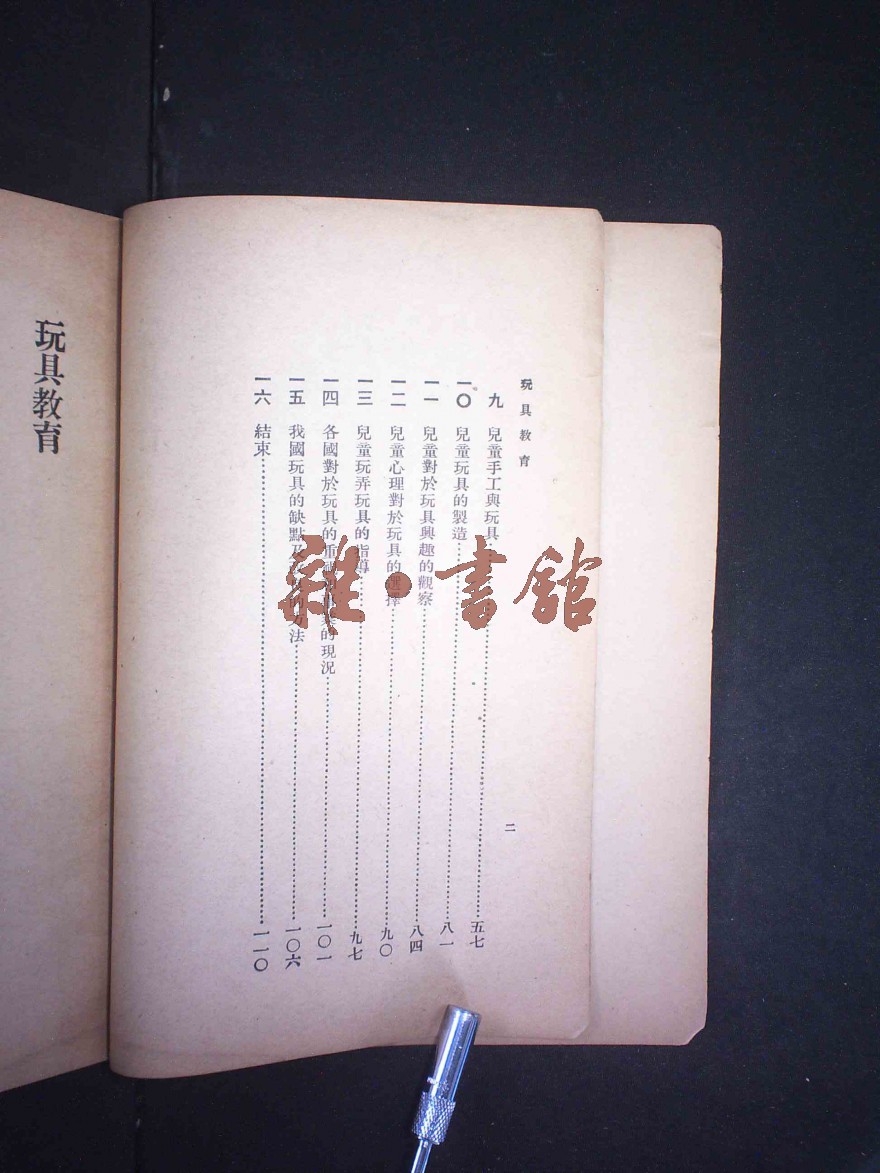 玩具教育
二
九 兒童手工與玩具……五七
一〇 兒童玩具的製造……八一
一一 兒童對於玩具興趣的觀察……八四
一二 兒童心理對於玩具的選擇……九〇
一三 兒童玩弄玩具的指導……九七
一四 各國對於玩具的重視 的現況……一〇一
一五 我國玩具的缺點及 的方法……一〇六
一六 結束……一一〇
玩具教育
雜·書館